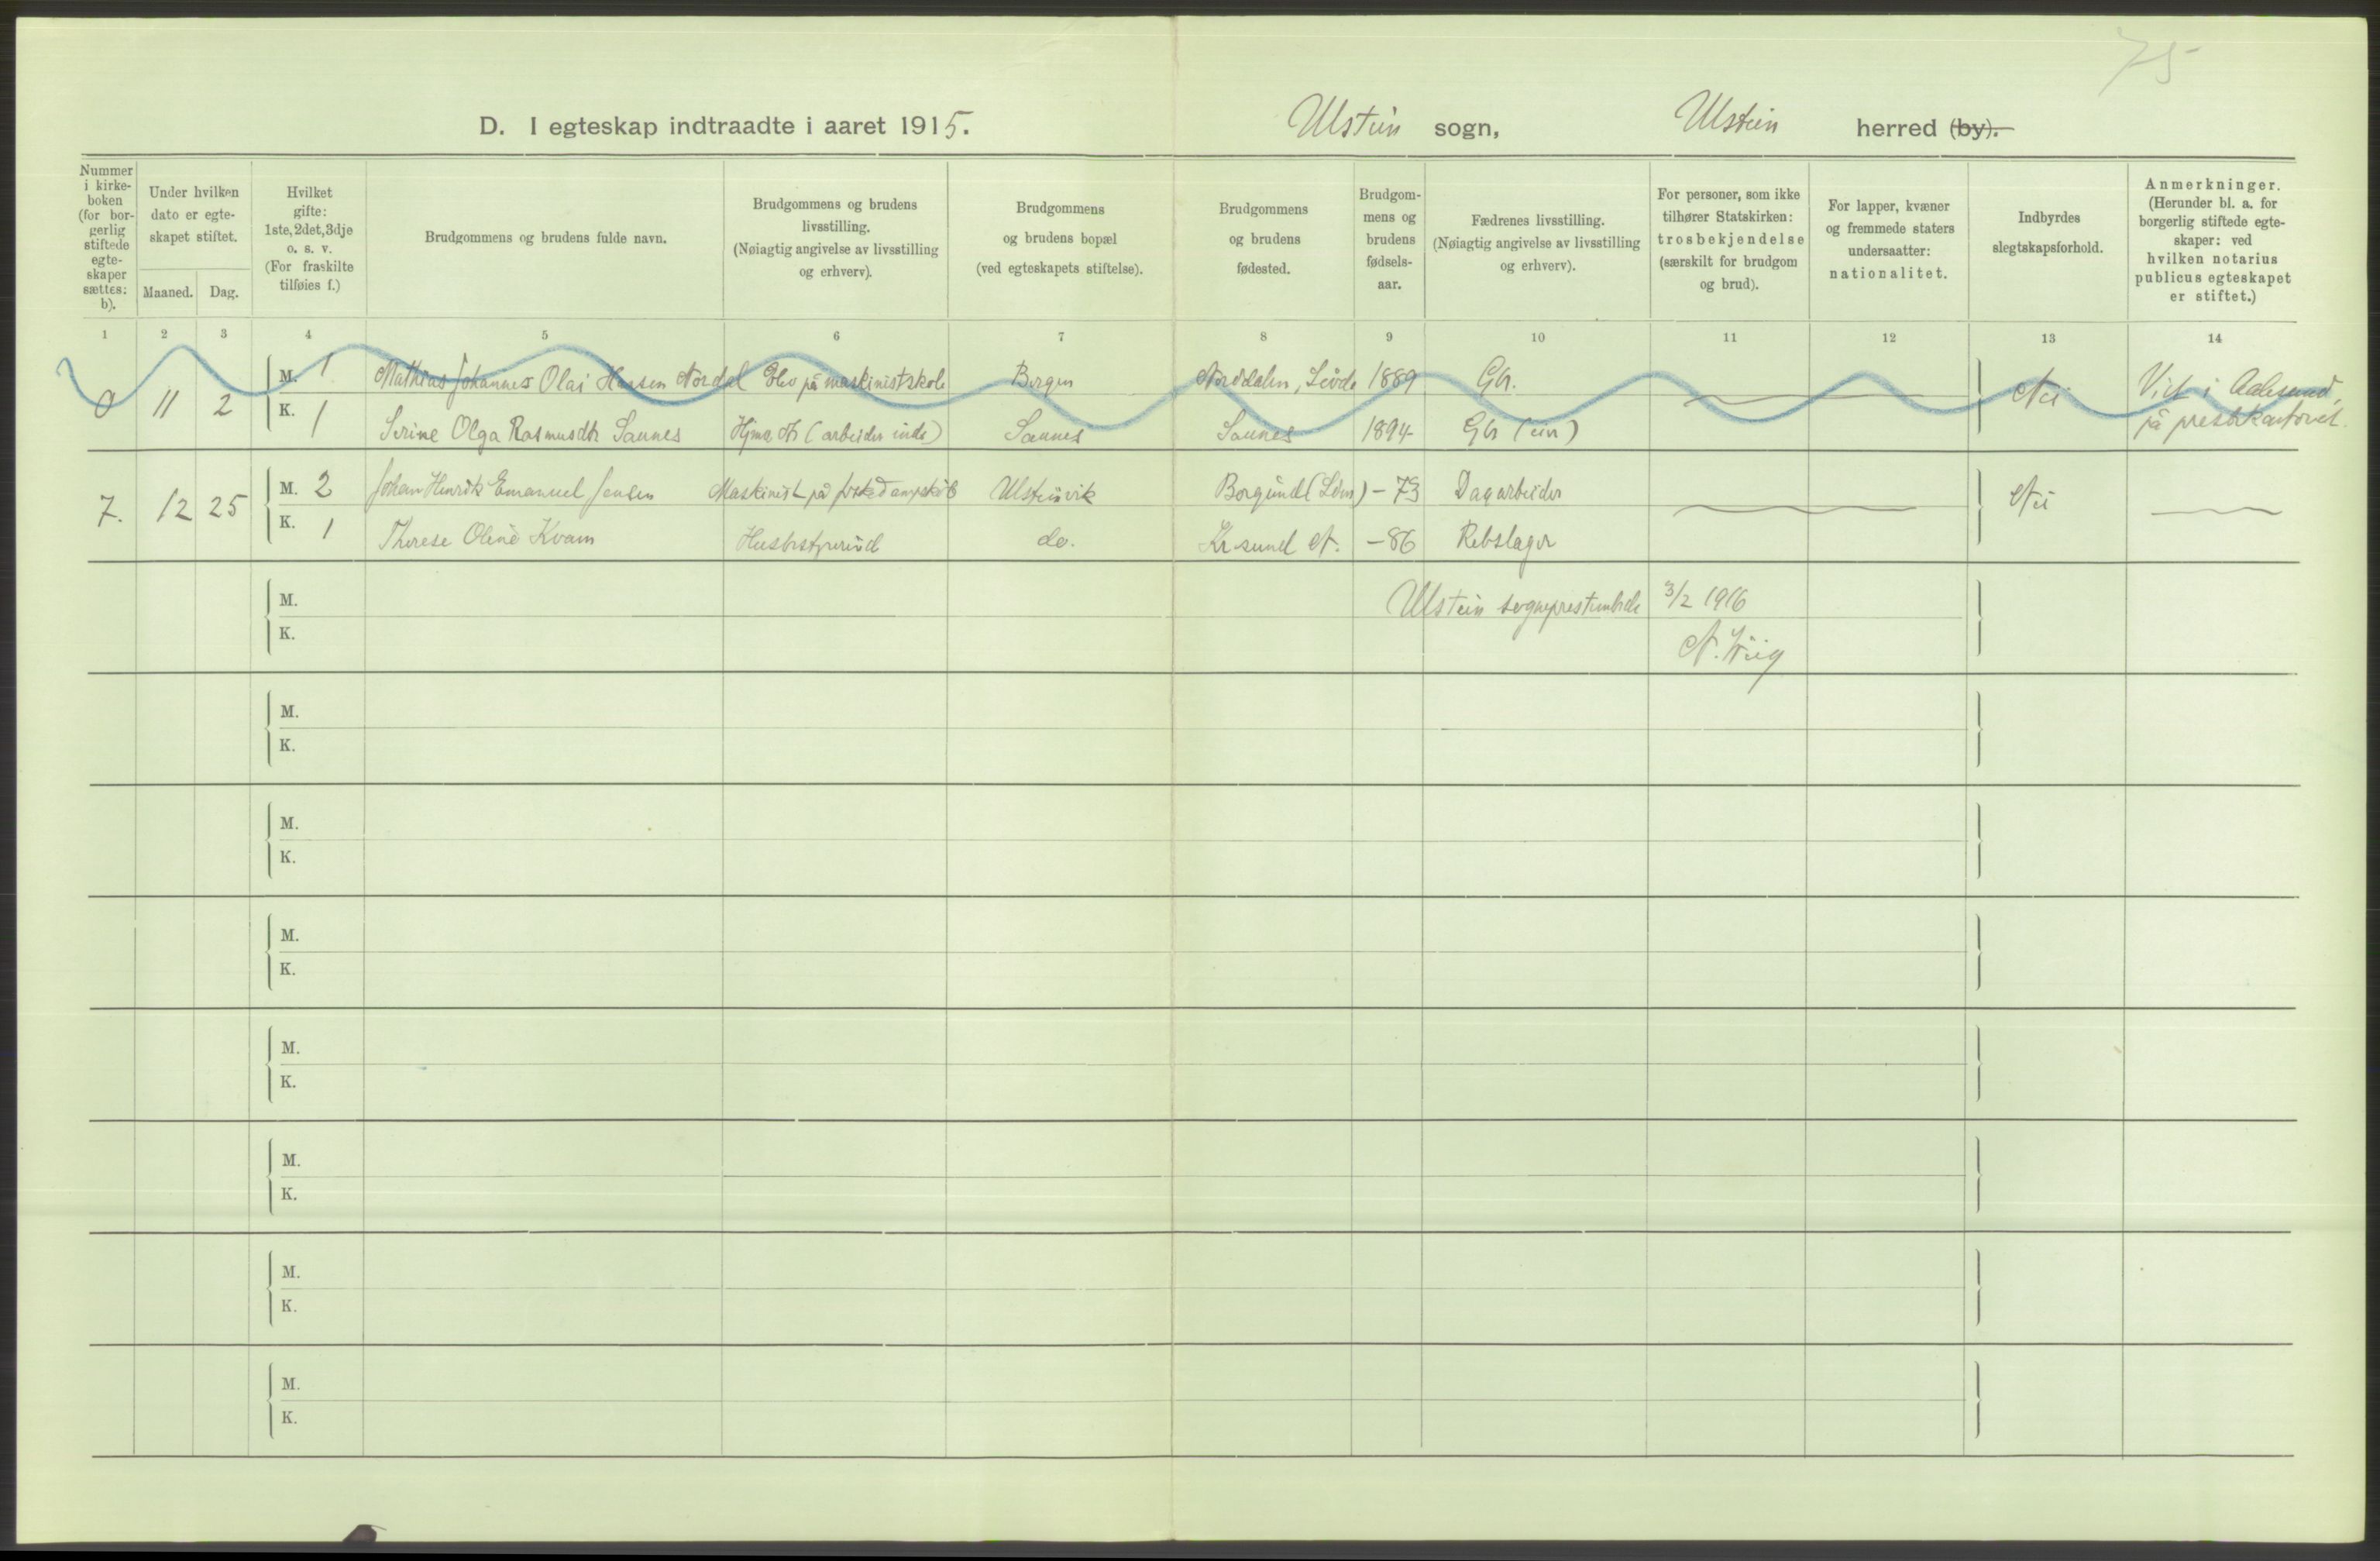 75
D. I egteskap indtraadte i aaret 1915. Ulstein sogn, Ulstein herred (by).
Nummer i kirke-boken (for bor-gerlig stiftede egte-skaper sættes: b).
Under hvilken dato er egte-skapet stiftet.
Maaned. Dag.
Hvilket gifte: 1ste, 2det, 3dje o. s. v. (For fraskilte tilføies f.)
Brudgommens og brudens fulde navn.
Brudgommens og brudens livsstilling. (Nøiagtig angivelse av livsstilling og erhverv).
Brudgommens og brudens bopæl (ved egteskapets stiftelse).
Brudgommens og brudens fødested.
Brudgom-mens og brudens fødsels-aar.
Fædrenes livsstilling. (Nøiagtig angivelse av livsstilling og erhverv).
For personer, som ikke tilhører Statskirken: trosbekjendelse (særskilt for brudgom og brud).
For lapper, kvæner og fremmede staters undersaatter: nationalitet.
Indbyrdes slegtskapsforhold.
Anmerkninger. (Herunder bl. a. for borgerlig stiftede egte-skaper: ved hvilken notarius publicus egteskapet er stiftet.)
1 2 3 4 5 6 7 8 9 10 11 12 13 14
M. 1 Mathias Johannes Olai Hansen Nordal Elev på maskinistskole Bergen Norddalen, 1889 Gbr. Vid i Aalesund,
0 11 2 Nei
K. 1 Serine Olga Rasmusdtr Saunes Hjmv. dtr (arbeider inde) Saunes Saunes 1894 Gbr på prestekontoret.
M. 2 Johan Henrik Emanuel Jensen Maskinist på fiskedampskib Ulsteinvik Borgund - 73 Dagarbeider
7. 12 25 Nei
K. 1 Therese Oline Kvam Husbestyrerind do. Kr.sund N. - 86 Rebslager
M. Ulstein sogneprestembede 3/2 1916
K. N. Wiig
M.
K.
M.
K.
M.
K.
M.
K.
M.
K.
M.
K.
M.
K.